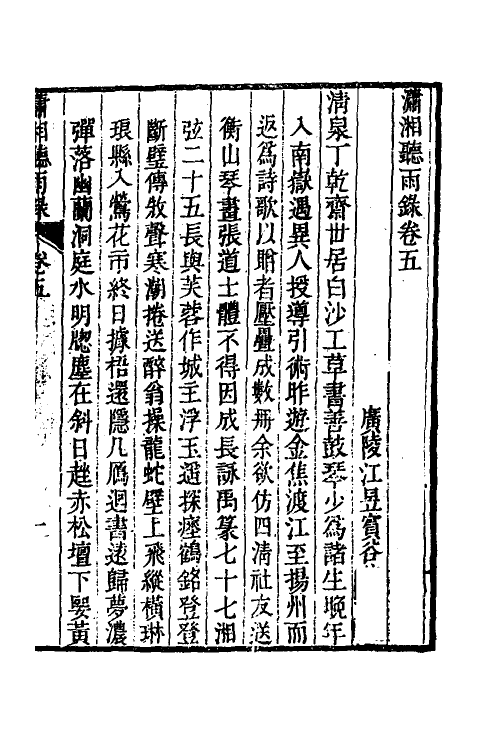 瀟湘聽雨錄卷五
廣陵江昱賓谷
清泉丁乾齋世居白沙工草書善鼓琴少爲諸生晚年
入南嶽遇異人授導引術昨遊金焦渡江至揚州而
返爲詩歌以贈者壓疊成數册余欲仿四清社友送
衡山琴畫張道士體不得因成長詠禹篆七十七湘
弦二十五長與芙蓉作城主浮玉遥探瘞鶴銘登登
斷壁傳敉聲寒潮捲送醉翁操龍蛇壁上飛縱橫琳
琅縣入鶯花市終日據梧還隱几鴈迴書遠歸夢濃
彈落幽蘭洞庭水明牕塵在斜日趖赤松壇下娶黃
瀟湘聽雨錄
卷五
一